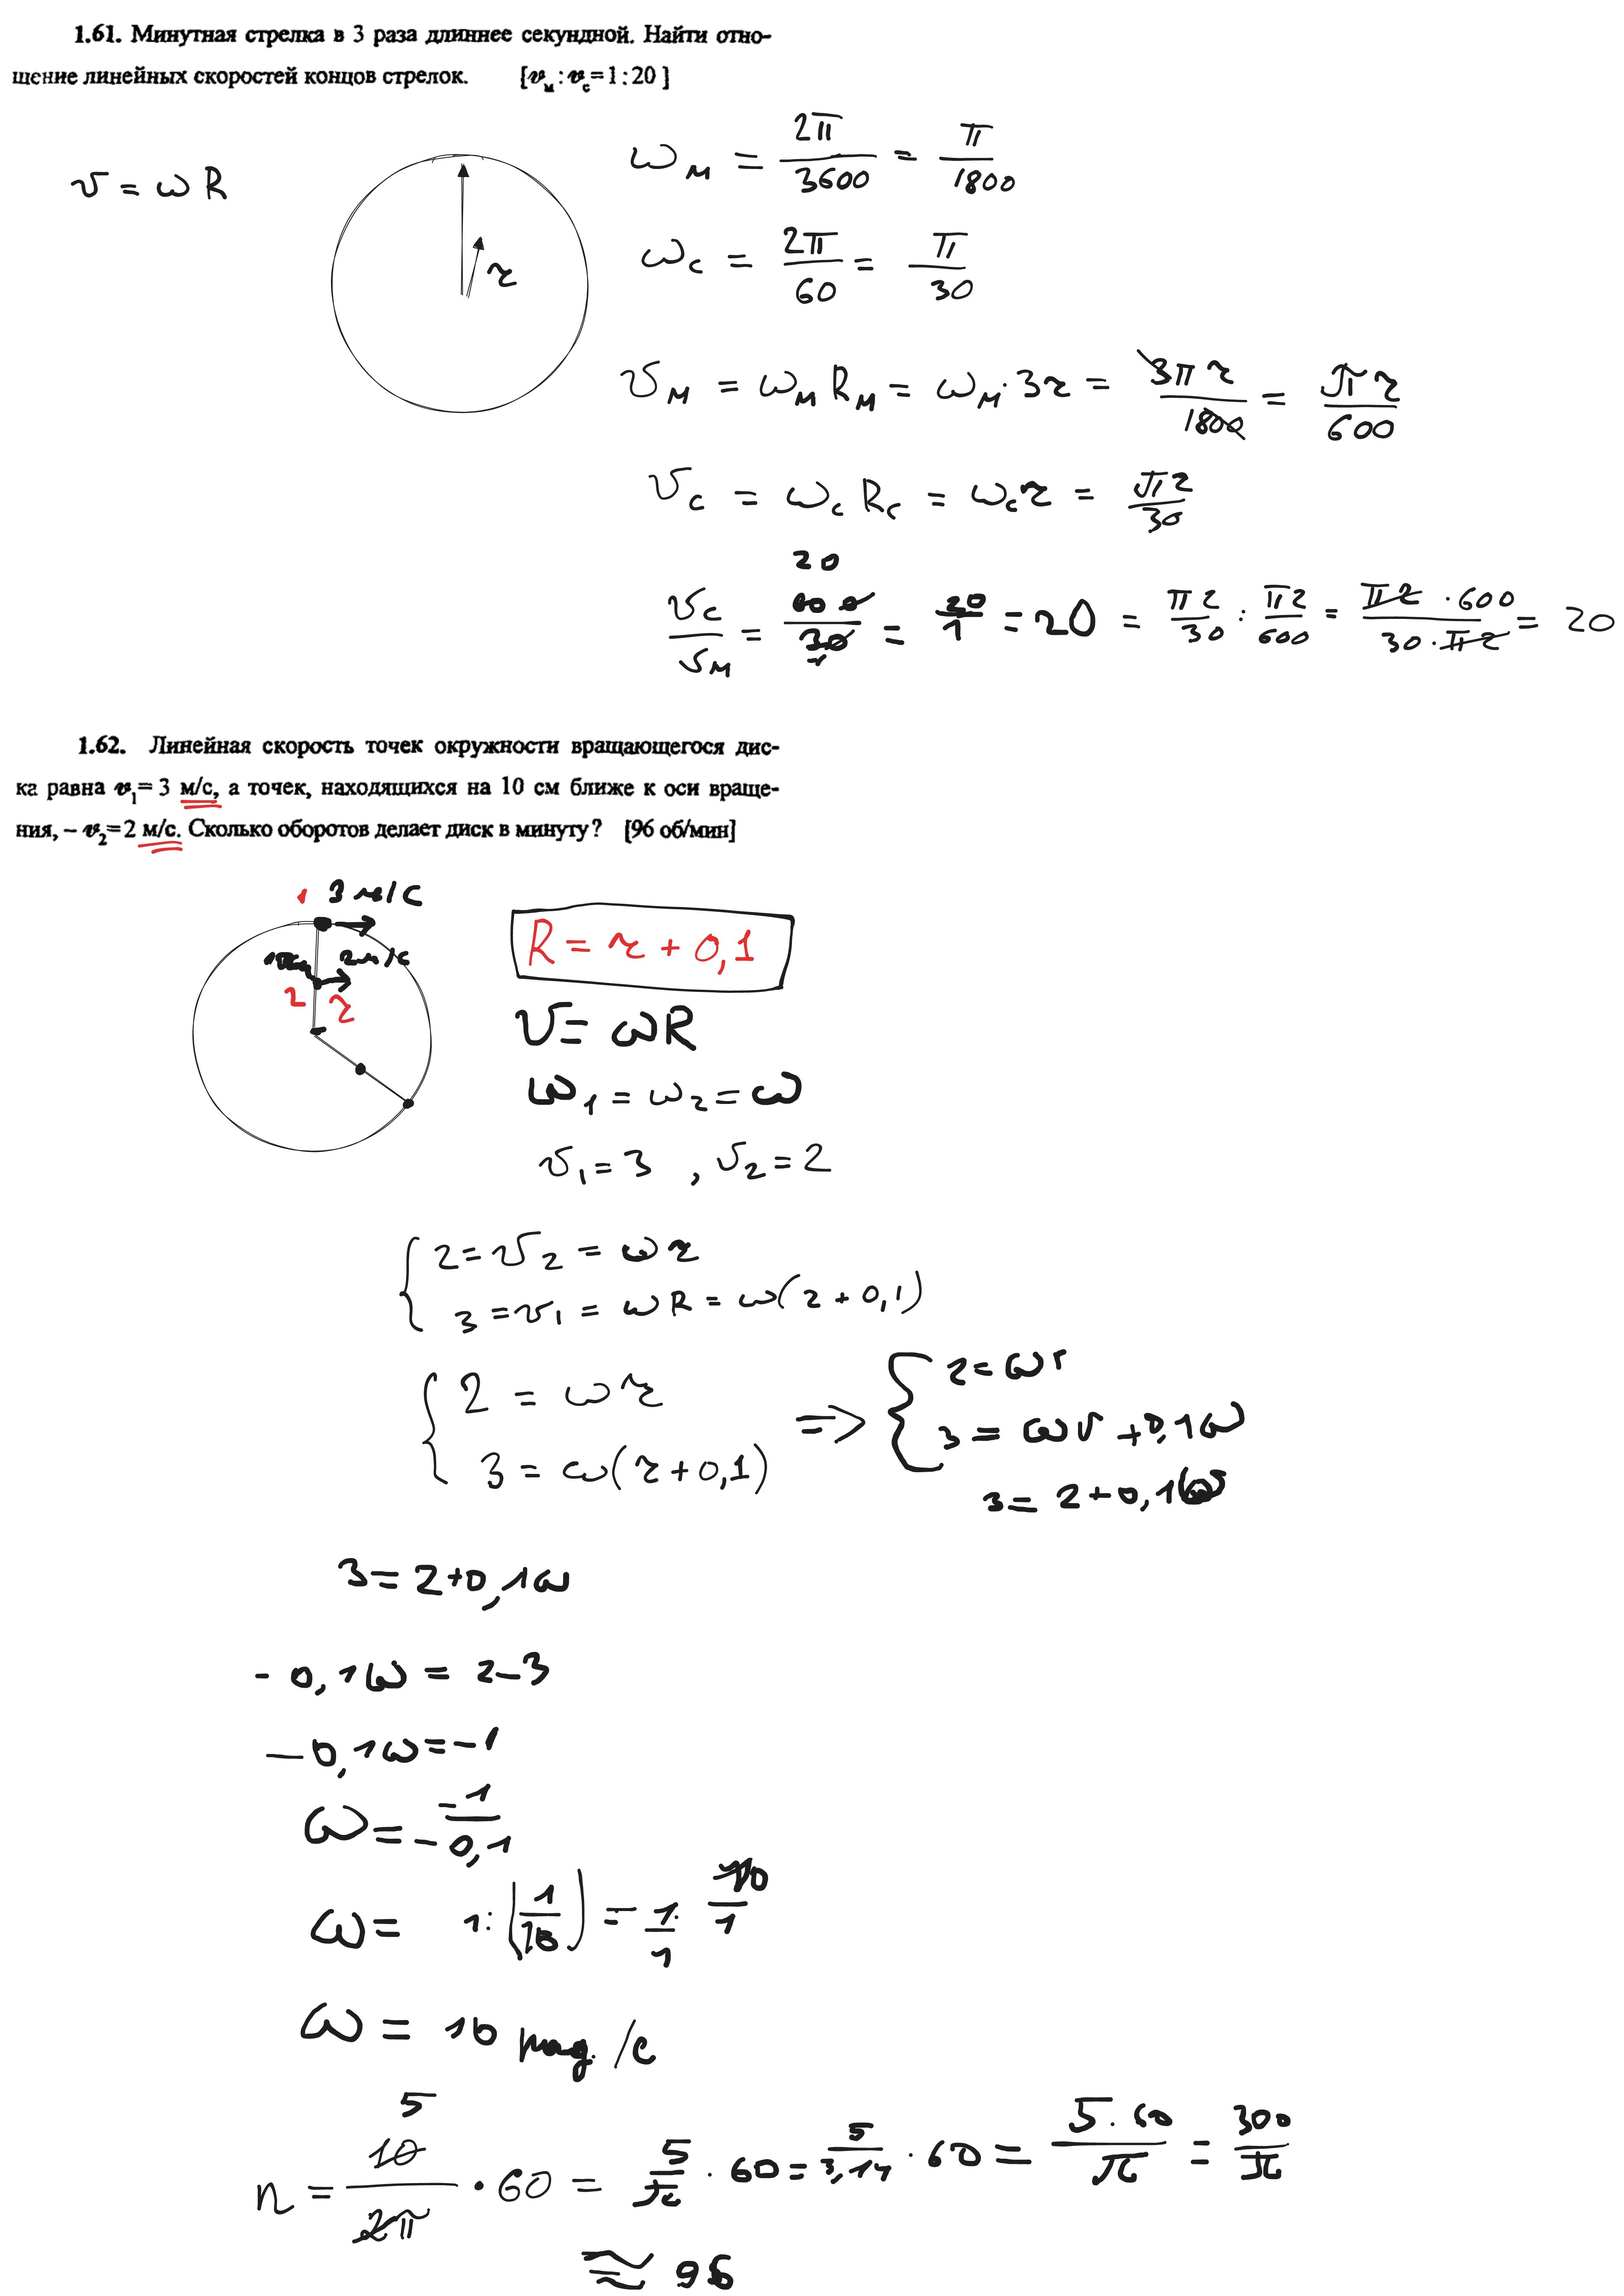 1.61. Минутная стрелка в 3 раза длиннее секундной. Найти отно-
шение линейных скоростей концов стрелок. [v_м : v_c = 1 : 20 ]
v = ω R
r
ω_м = 2π/3600 = π/1800
ω_c = 2π/60 = π/30
v_м = ω_м R_м = ω_м · 3r = 3πr/1800 = πr/600
v_c = ω_c R_c = ω_c r = πr/30
20
v_c/v_м = 600/30 = 20/1 = 20 = πr/30 : πr/600 = πr · 600/30 · πr = 20
1.62. Линейная скорость точек окружности вращающегося дис-
ка равна v_1 = 3 м/с, а точек, находящихся на 10 см ближе к оси враще-
ния, – v_2 = 2 м/с. Сколько оборотов делает диск в минуту ? [96 об/мин]
1 3 м/с
2м/с
2 r
R = r + 0,1
v = ωR
ω_1 = ω_2 = ω
v_1 = 3 , v_2 = 2
2 = v_2 = ω r
3 = v_1 = ω R = ω(r + 0,1)
2 = ω r
3 = ω(r + 0,1)
=> 2 = ωr
3 = ωr + 0,1ω
3 = 2 + 0,1ω
3 = 2 + 0,1ω
- 0,1ω = 2 - 3
- 0,1ω = - 1
ω = -1/-0,1
ω = 1 : (1/10) = 1/1 · 10/1
ω = 10 рад. /с
5
n = 10/2π · 60 = 5/π · 60 = 5/3,14 · 60 = 5 · 60/π = 300/π
≈ 96